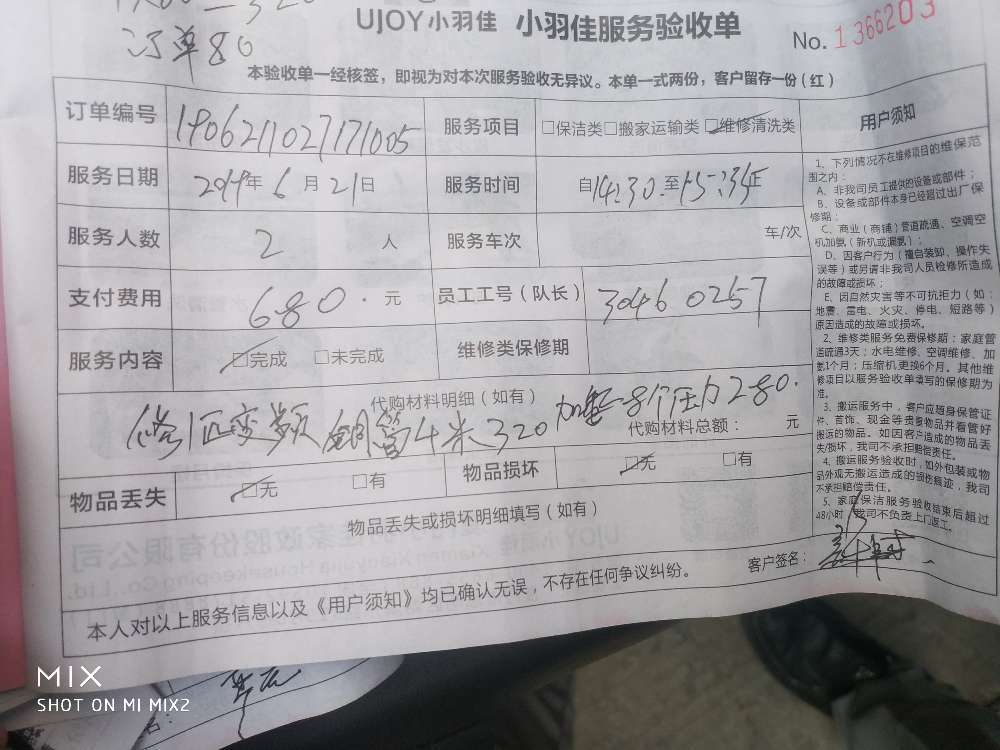 订单80
UJOY小羽佳 小羽佳服务验收单
No. 1366203
本验收单一经核签，即视为对本次服务验收无异议。本单一式两份，客户留存一份（红）
订单编号 1906211027171005 服务项目 □保洁类□搬家运输类☑维修清洗类
服务日期 2019年6月21日 服务时间 自14:30至15:34止
服务人数 2 人 服务车次 车/次
支付费用 680.元 员工工号（队长） 3046 0257
服务内容 ☑完成 □未完成 维修类保修期
代购材料明细（如有）
修1匹变频 铜管4米320 加 8个压力280.
代购材料总额： 元
物品丢失 ☑无 □有 物品损坏 ☑无 □有
物品丢失或损坏明细填写（如有）
本人对以上服务信息以及《用户须知》均已确认无误，不存在任何争议纠纷。
客户签名：
用户须知
1、下列情况不在维修项目的维保范
围之内：
A、非我司员工提供的设备或部件；
B、设备或部件本身已经超过出厂保
修期；
C、商业（商铺）管道疏通、空调空
机加氨（新机或漏氨）；
D、因客户行为（擅自装卸、操作失
误等）或另请非我司人员检修所造成
的故障或损坏；
E、因自然灾害等不可抗拒力（如：
地震、雷电、火灾、停电、短路等）
原因造成的故障或损坏。
2、维修类服务免费保修期：家庭管
道疏通3天；水电维修、空调维修、加
氨1个月；压缩机更换6个月。其他维
修项目以服务验收单填写的保修期为
准。
3、搬运服务中，客户应随身保管证
件、首饰、现金等贵重物品并看管好
搬运的物品。如因客户造成的物品丢
失/损坏，我司不承担赔偿责任。
4、搬运服务验收时，如外包装或物
品外观无搬运造成的损伤痕迹，我司
不承担赔偿责任。
5、家庭保洁服务验收结束后超过
48小时，我司不负责上门返工。
MIX
SHOT ON MI MIX2